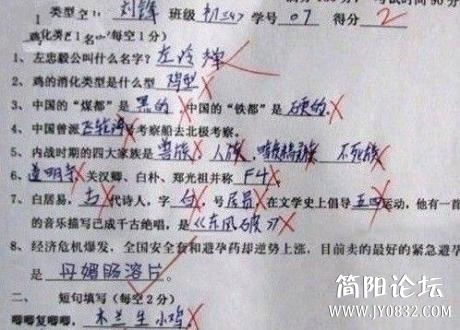 类型空： 刘锋 班级 初三47 学号 07 得分 2
鸡化类 1 名 （每空1分）
1、左忠毅公叫什么名字？左冷禅
2、鸡的消化类型是什么型 鸡型
3、中国的“煤都”是 黑的，中国的“铁都”是 硬的
4、中国曾派 号考察船去北极考察。
5、内战时期的四大家族是 兽族，人族， 不死族
6、道明寺 关汉卿、白朴、郑光祖并称 F4
7、白居易， 古 代诗人，字 白，号 居易 在文学史上倡导 五四 运动，他有一首
的音乐描写已成千古绝唱，是《东风破》
8、经济危机爆发，全国安全套和避孕药却逆势上涨，目前卖的最好的紧急避孕
是 丹媚肠溶片。
二、 短句填写（每空2分）
唧唧复唧唧， 木兰生小鸡
简阳论坛
www.JY0832.com